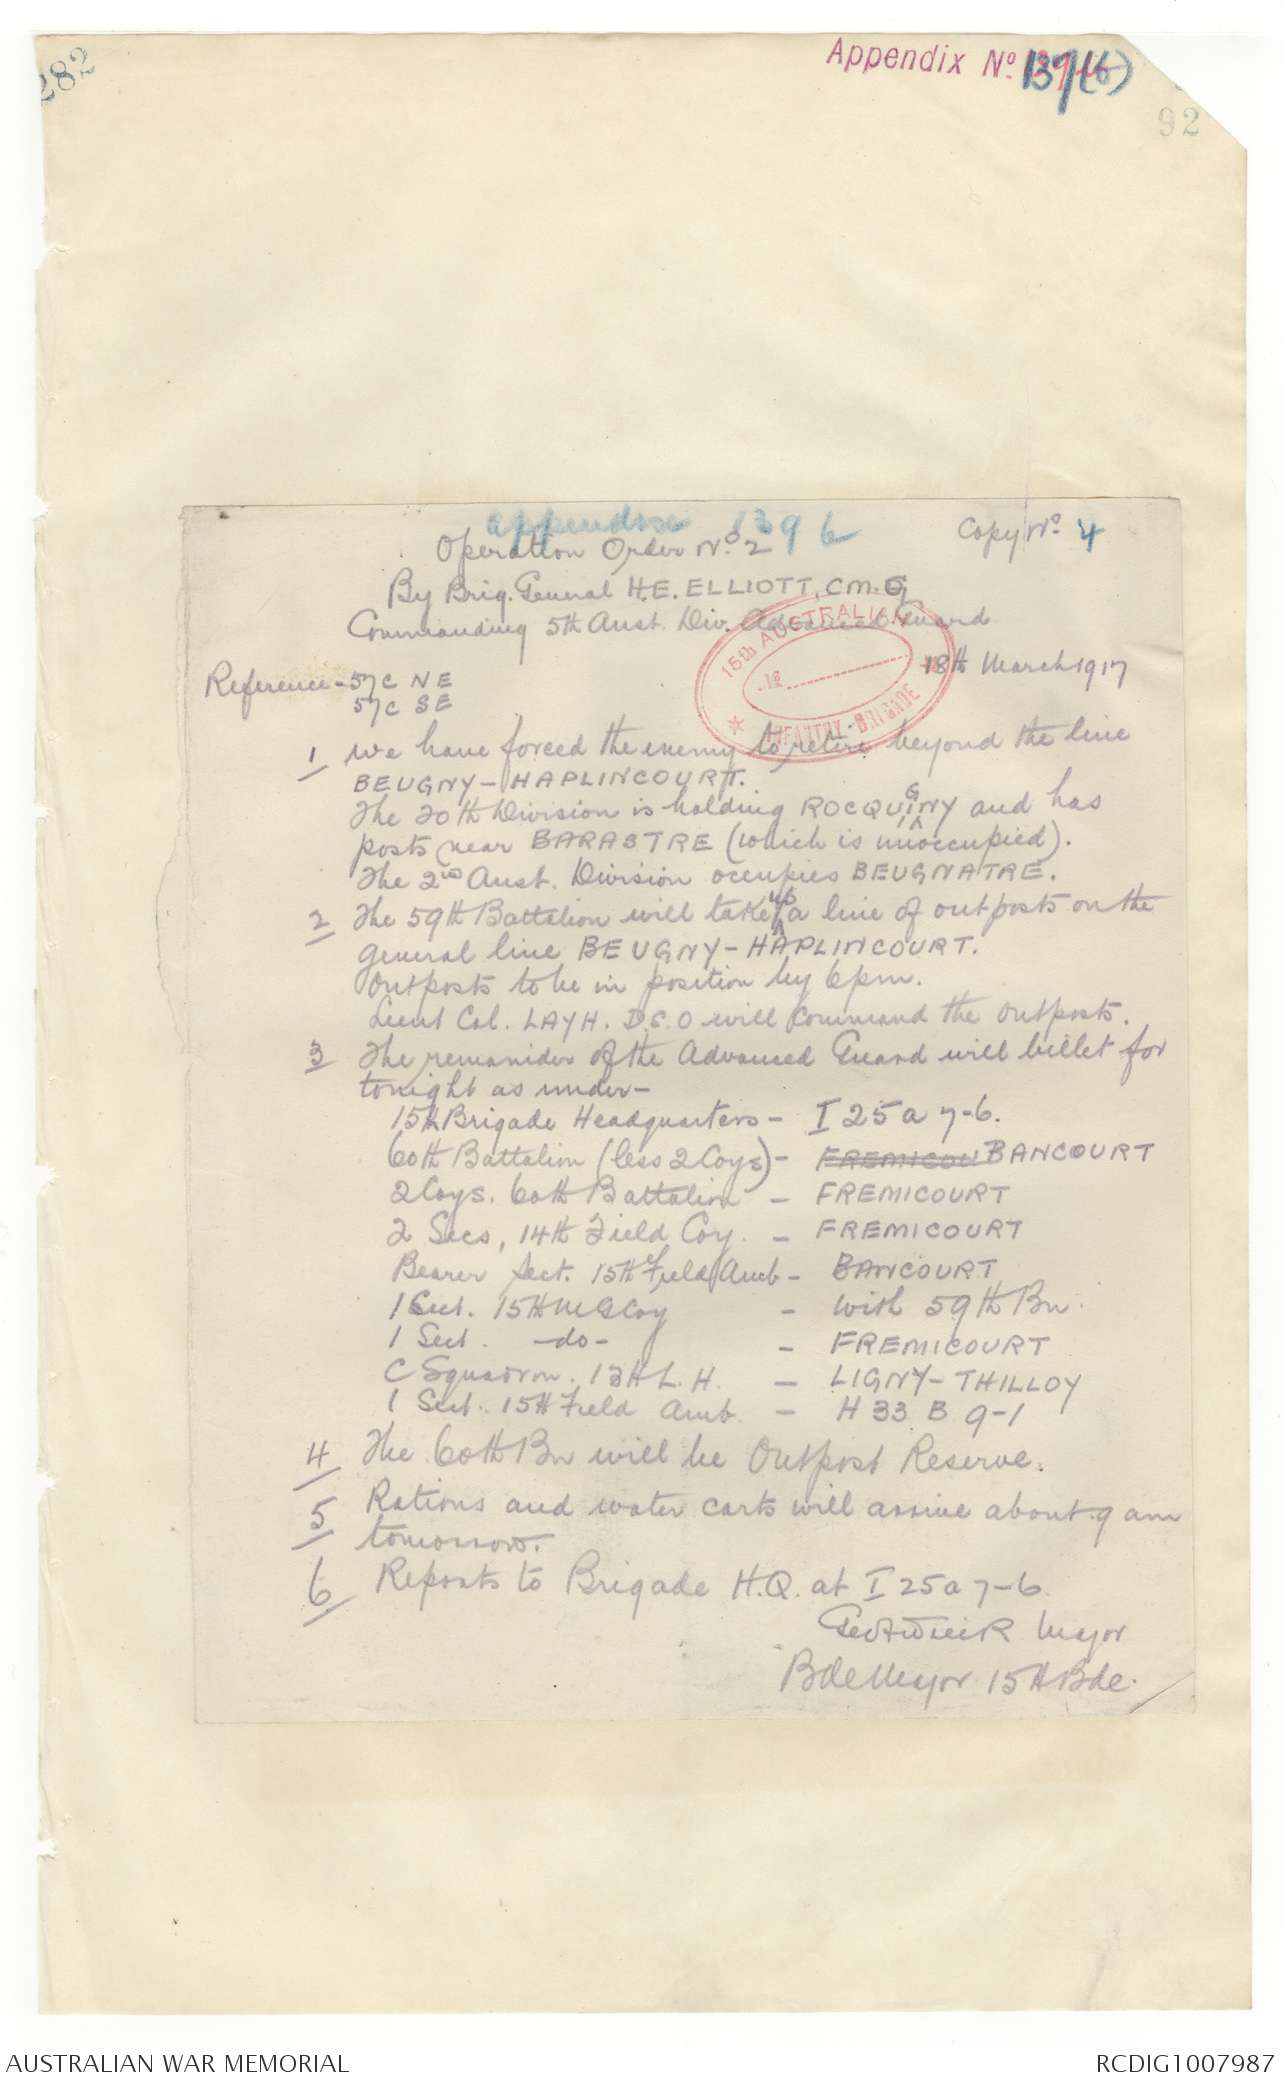 282
Appendix No. 137(b)
92
appendix 139 b
Operation Order No. 2
Copy No. 4
By Brig. General H.E. ELLIOTT, C.M.G
Commanding 5th Aust. Div. Advanced Guard
15th AUSTRALIAN
INFANTRY BRIGADE
18th March 1917
Reference - 57C NE
57C SE
1 We have forced the enemy to retire beyond the line
BEUGNY - HAPLINCOURT.
The 20th Division is holding ROCQUIGNY and has
posts near BARASTRE (which is unoccupied).
The 2nd Aust. Division occupies BEUGNATRE.
2 The 59th Battalion will take up a line of outposts on the
general line BEUGNY - HAPLINCOURT.
Outposts to be in position by 6pm.
Lieut Col. LAYH. D.S.O will command the outposts.
3 The remainder of the Advanced Guard will billet for
tonight as under -
15th Brigade Headquarters - I 25 a 7-6.
60th Battalion (less 2 Coys) - FREMICOU BANCOURT
2 Coys. 60th Battalion - FREMICOURT
2 Secs, 14th Field Coy. - FREMICOURT
Bearer Sect. 15th Field Amb - BANCOURT
1 Sect. 15th M G Coy - with 59th Bn.
1 Sect. -do- - FREMICOURT
C Squadron. 13th L.H. - LIGNY - THILLOY
1 Sect. 15th Field Amb. - H 33 B 9-1
4 The 60th Bn will be Outpost Reserve.
5 Rations and water carts will arrive about 9 am
tomorrow.
6 Reports to Brigade H.Q. at I 25 a 7-6
Geo A Wieck Major
Bde Major 15th Bde.
AUSTRALIAN WAR MEMORIAL
RCDIG1007987